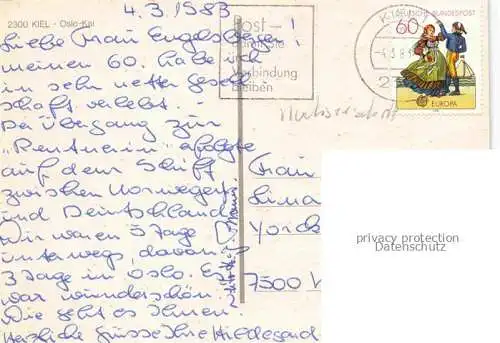 2300 KIEL - Oslo-Kai
4.3.1983
Liebe Frau Engelsberger!
meinen 60. habe ich
in sehr netter Gesell
schaft verlebt.
Der Übergang zur
"Rentnerin" erfolgte
auf dem Schiff
zwischen Norwegen
und Deutschland.
Wir waren 5 Tage
unterwegs, davon
3 Tage in Oslo. Es
war wunderschön.
Wie geht es Ihnen.
Herzliche Grüsse Ihre Hildegard
Post -
damit Sie
in Verbindung
bleiben
- 4.3.8
2
DEUTSCHE BUNDESPOST
60
EUROPA
Frau
Lina
Yorck
7500
privacy protection
Datenschutz